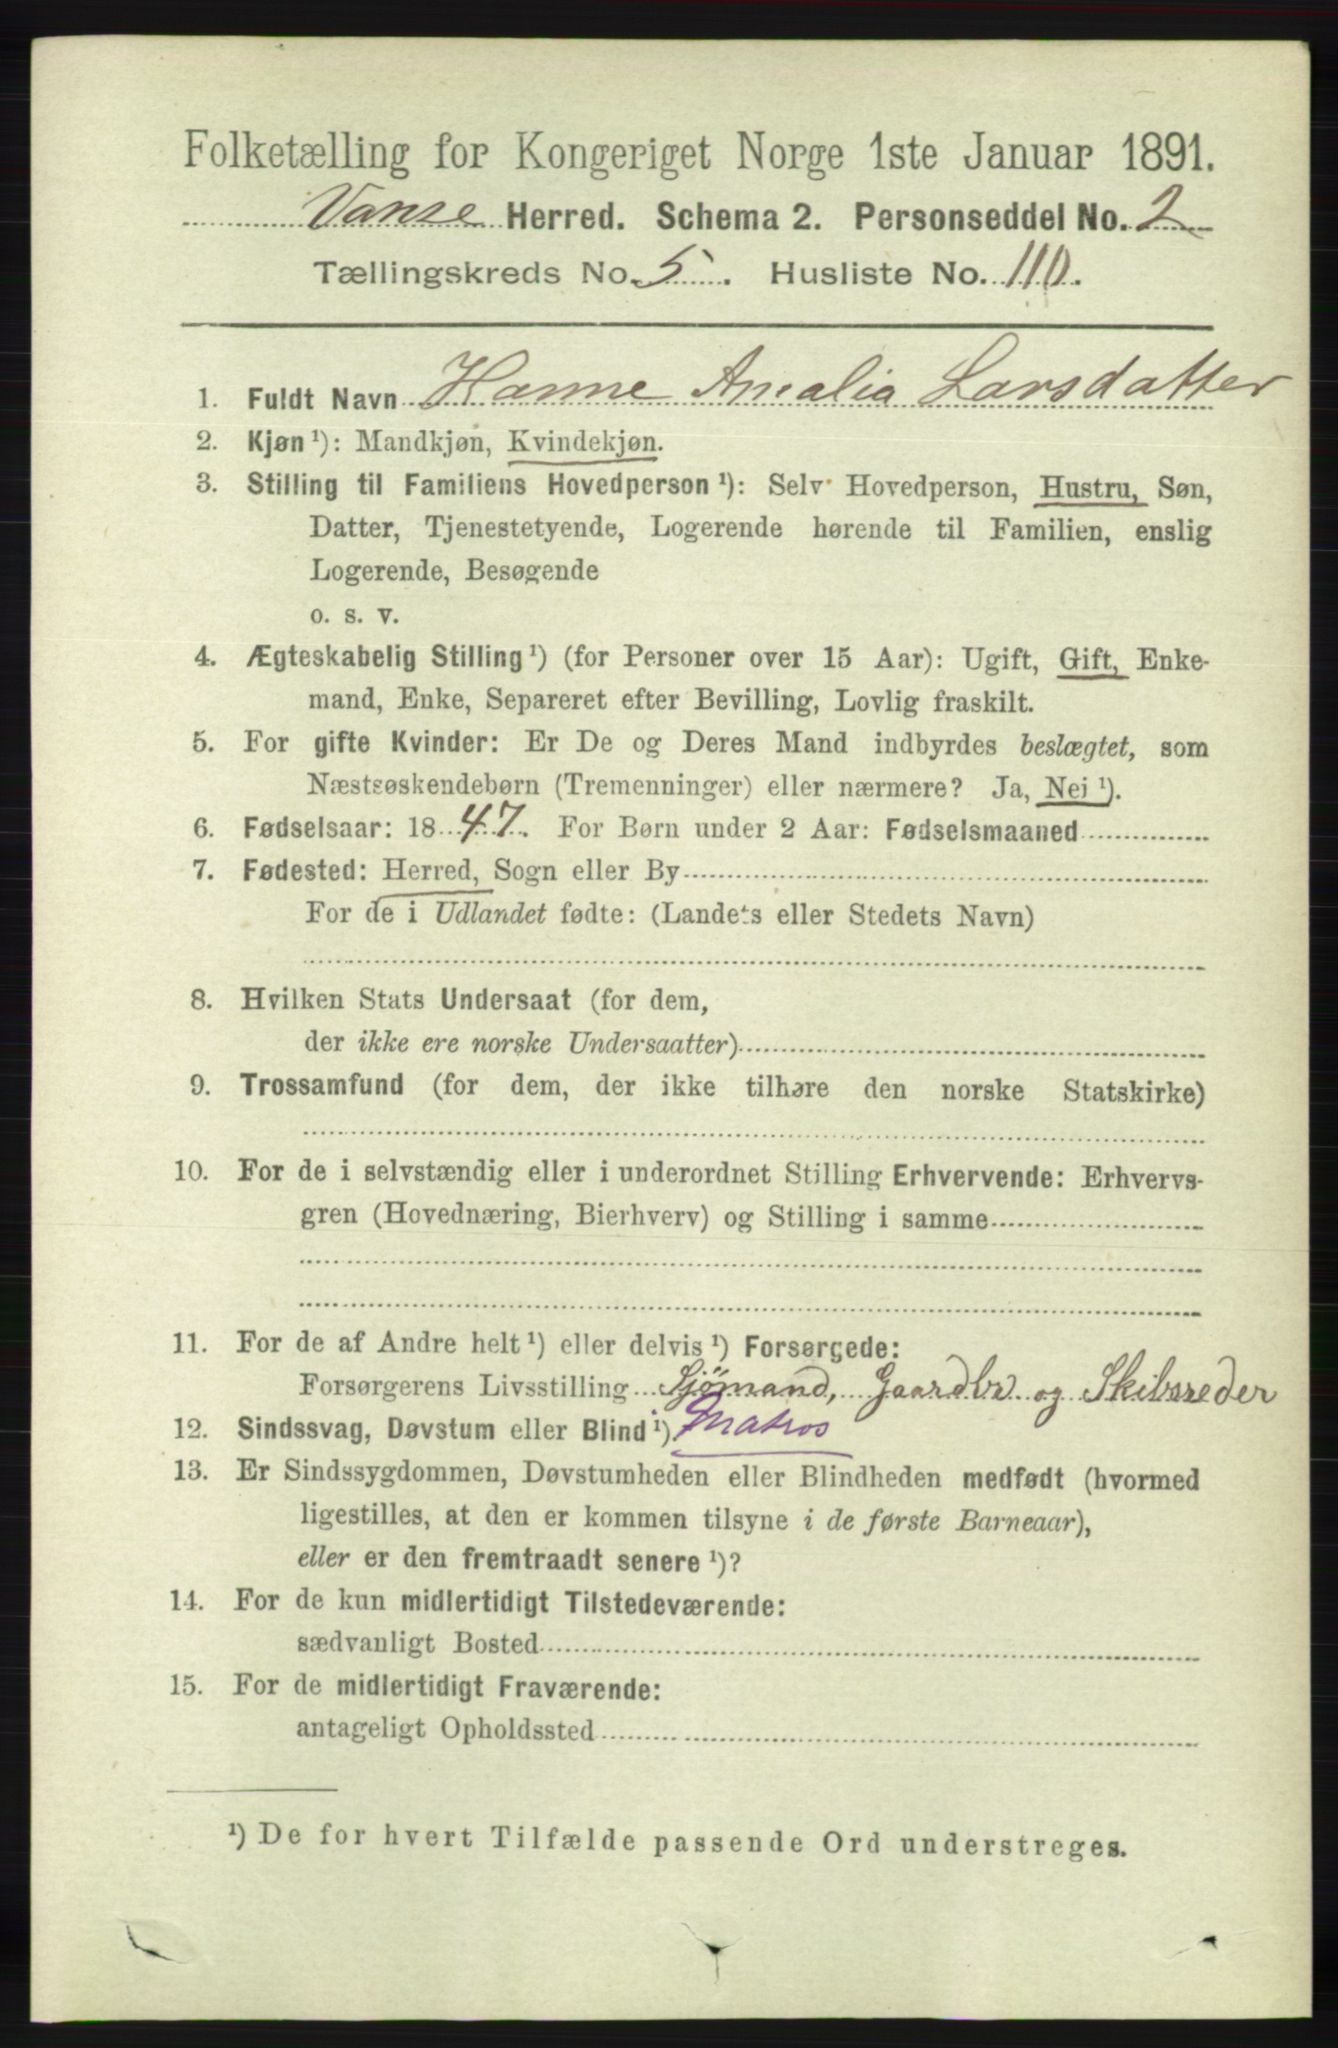 Folketælling for Kongeriget Norge 1ste Januar 1891.
Vanse Herred. Schema 2. Personseddel No. 2
Tællingskreds No. 5. Husliste No. 110.
1. Fuldt Navn Hanne Amalia Larsdatter
2. Kjøn ¹): Mandkjøn, Kvindekjøn.
3. Stilling til Familiens Hovedperson ¹): Selv Hovedperson, Hustru, Søn,
Datter, Tjenestetyende, Logerende hørende til Familien, enslig
Logerende, Besøgende
o. s. v.
4. Ægteskabelig Stilling ¹) (for Personer over 15 Aar): Ugift, Gift, Enke-
mand, Enke, Separeret efter Bevilling, Lovlig fraskilt.
5. For gifte Kvinder: Er De og Deres Mand indbyrdes beslægtet, som
Næstsøskendebørn (Tremenninger) eller nærmere? Ja, Nei ¹).
6. Fødselsaar: 1847. For Børn under 2 Aar: Fødselsmaaned
7. Fødested: Herred, Sogn eller By
For de i Udlandet fødte: (Landets eller Stedets Navn)
8. Hvilken Stats Undersaat (for dem,
der ikke ere norske Undersaatter)
9. Trossamfund (for dem, der ikke tilhøre den norske Statskirke)
10. For de i selvstændig eller i underordnet Stilling Erhvervende: Erhvervs-
gren (Hovednæring, Bierhverv) og Stilling i samme
11. For de af Andre helt ¹) eller delvis ¹) Forsørgede:
Forsørgerens Livsstilling Sjømand, Gaardbr og Skibsreder
12. Sindssvag, Døvstum eller Blind ¹) Matros
13. Er Sindssygdommen, Døvstumheden eller Blindheden medfødt (hvormed
ligestilles, at den er kommen tilsyne i de første Barneaar),
eller er den fremtraadt senere ¹)?
14. For de kun midlertidigt Tilstedeværende:
sædvanligt Bosted
15. For de midlertidigt Fraværende:
antageligt Opholdssted
¹) De for hvert Tilfælde passende Ord understreges.